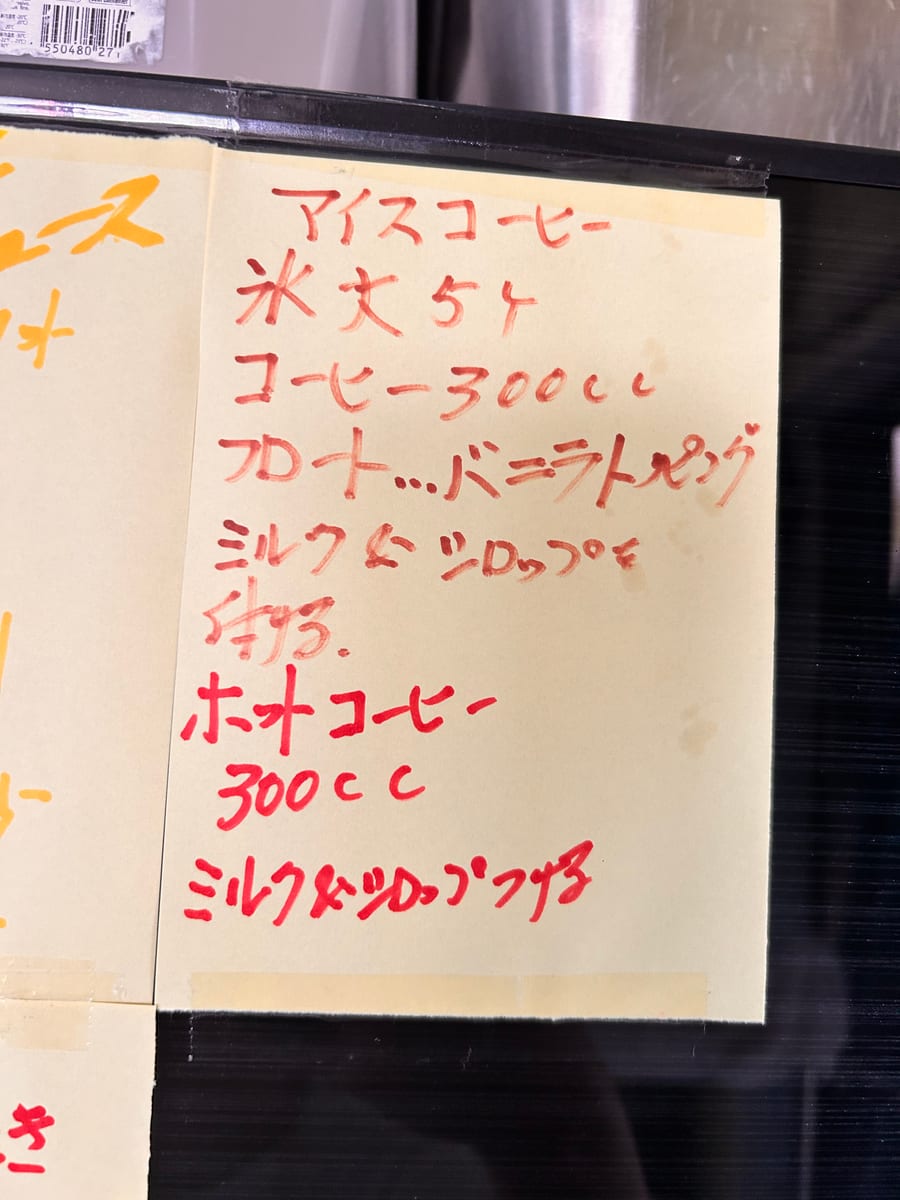 550480 27
ース
アイスコーヒー
氷大5ケ
コーヒー300cc
フロート…バニラトッピング
ミルク&シロップを
付ける.
ホットコーヒー
300cc
ミルク&シロップつける
き